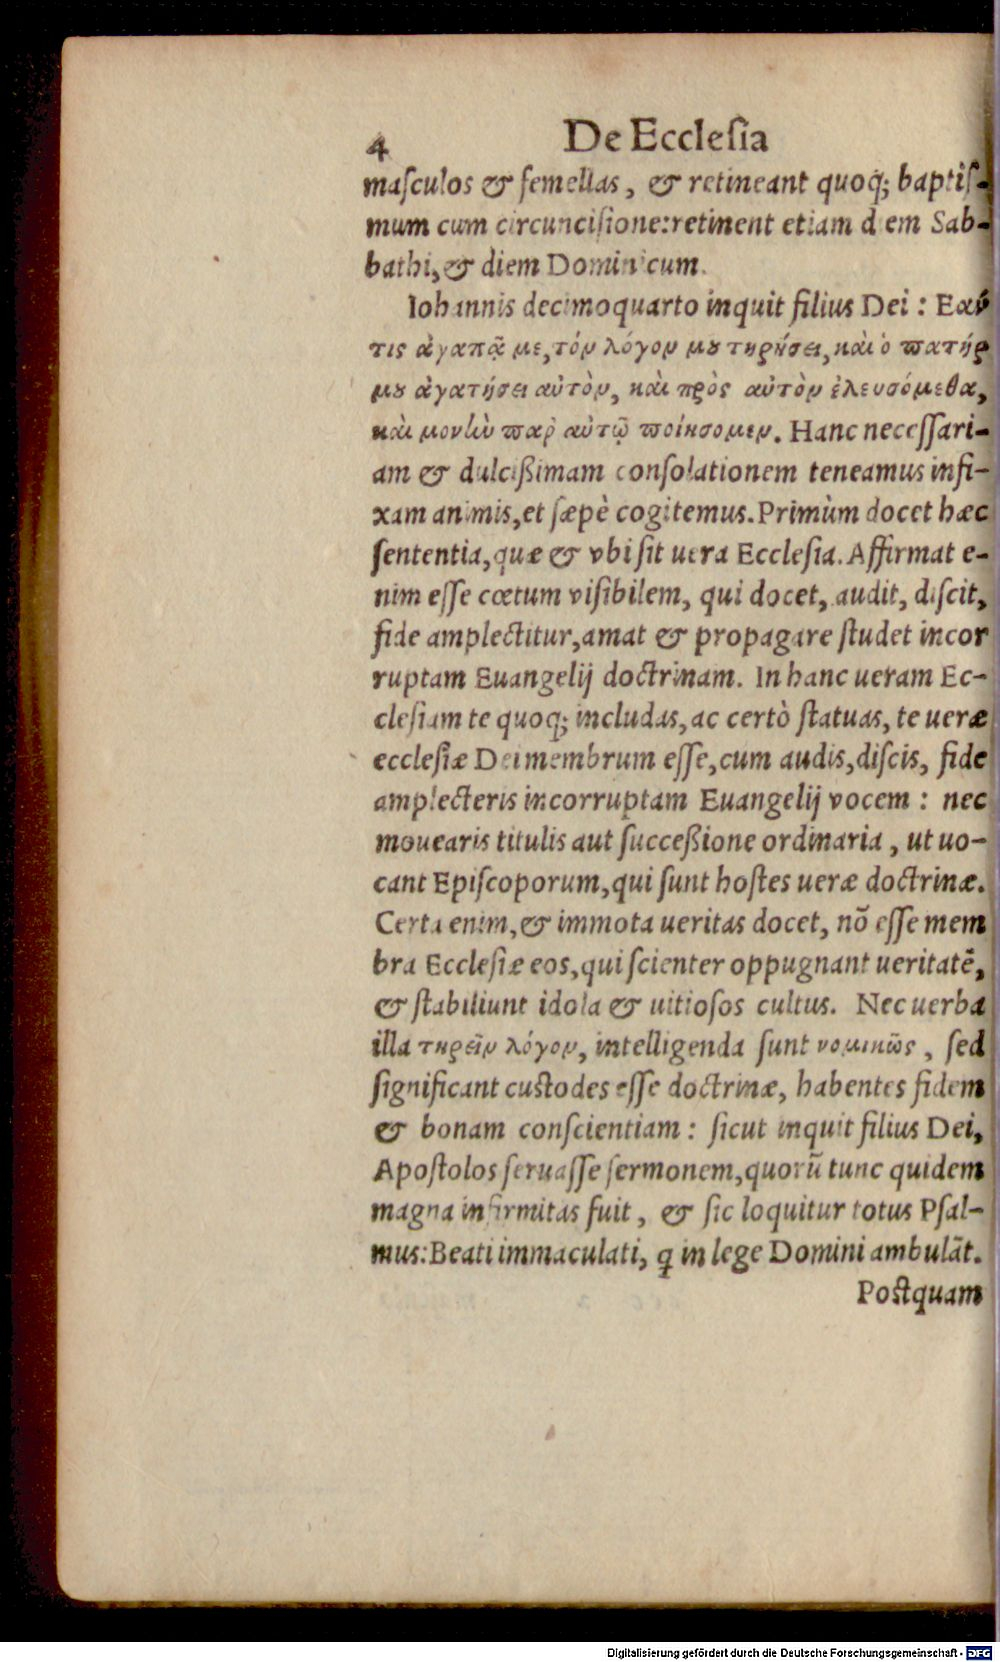 4 De Eccleſia
maſculos & femellas, & retineant quoq; baptiſ-
mum cum circunciſione: retinent etiam diem Sab-
bathi, & diem Dominicum.
Iohannis decimoquarto inquit filius Dei: Εαν́
τις ἀγαπᾷ με, τόν λόγον μȣ τηρήσει, καὶ ὁ πατήρ
μȣ ἀγατήσει αὐτὸν, καὶ πρὸς αὐτὸν ἐλευσόμεθα,
καὶ μονὴν παρ᾽ αὐτῷ ποίησομεν. Hanc neceſſari-
am & dulciſsimam conſolationem teneamus infi-
xam animis, et ſæpè cogitemus. Primùm docet hæc
ſententia, quæ & vbi ſit uera Eccleſia. Affirmat e-
nim eſſe cœtum viſibilem, qui docet, audit, diſcit,
fide amplectitur, amat & propagare ſtudet incor
ruptam Euangelij doctrinam. In hanc ueram Ec-
cleſiam te quoq; includas, ac certò ſtatuas, te ueræ
eccleſiæ Dei membrum eſſe, cum audis, diſcis, fide
amplecteris incorruptam Euangelij vocem: nec
mouearis titulis aut ſucceſsione ordinaria, ut uo-
cant Epiſcoporum, qui ſunt hoſtes ueræ doctrinæ.
Certa enim, & immota ueritas docet, nõ eſſe mem
bra Eccleſiæ eos, qui ſcienter oppugnant ueritatẽ,
& ſtabiliunt idola & uitioſos cultus. Nec uerba
illa τηρεῖν λόγον, intelligenda ſunt νομικῶς, ſed
ſignificant cuſtodes eſſe doctrinæ, habentes fidem
& bonam conſcientiam: ſicut inquit filius Dei,
Apoſtolos ſeruaſſe ſermonem, quorũ tunc quidem
magna infirmitas fuit, & ſic loquitur totus Pſal-
mus: Beati immaculati, q̃ in lege Domini ambulãt.
Poſtquam
Digitalisierung gefördert durch die Deutsche Forschungsgemeinschaft - DFG